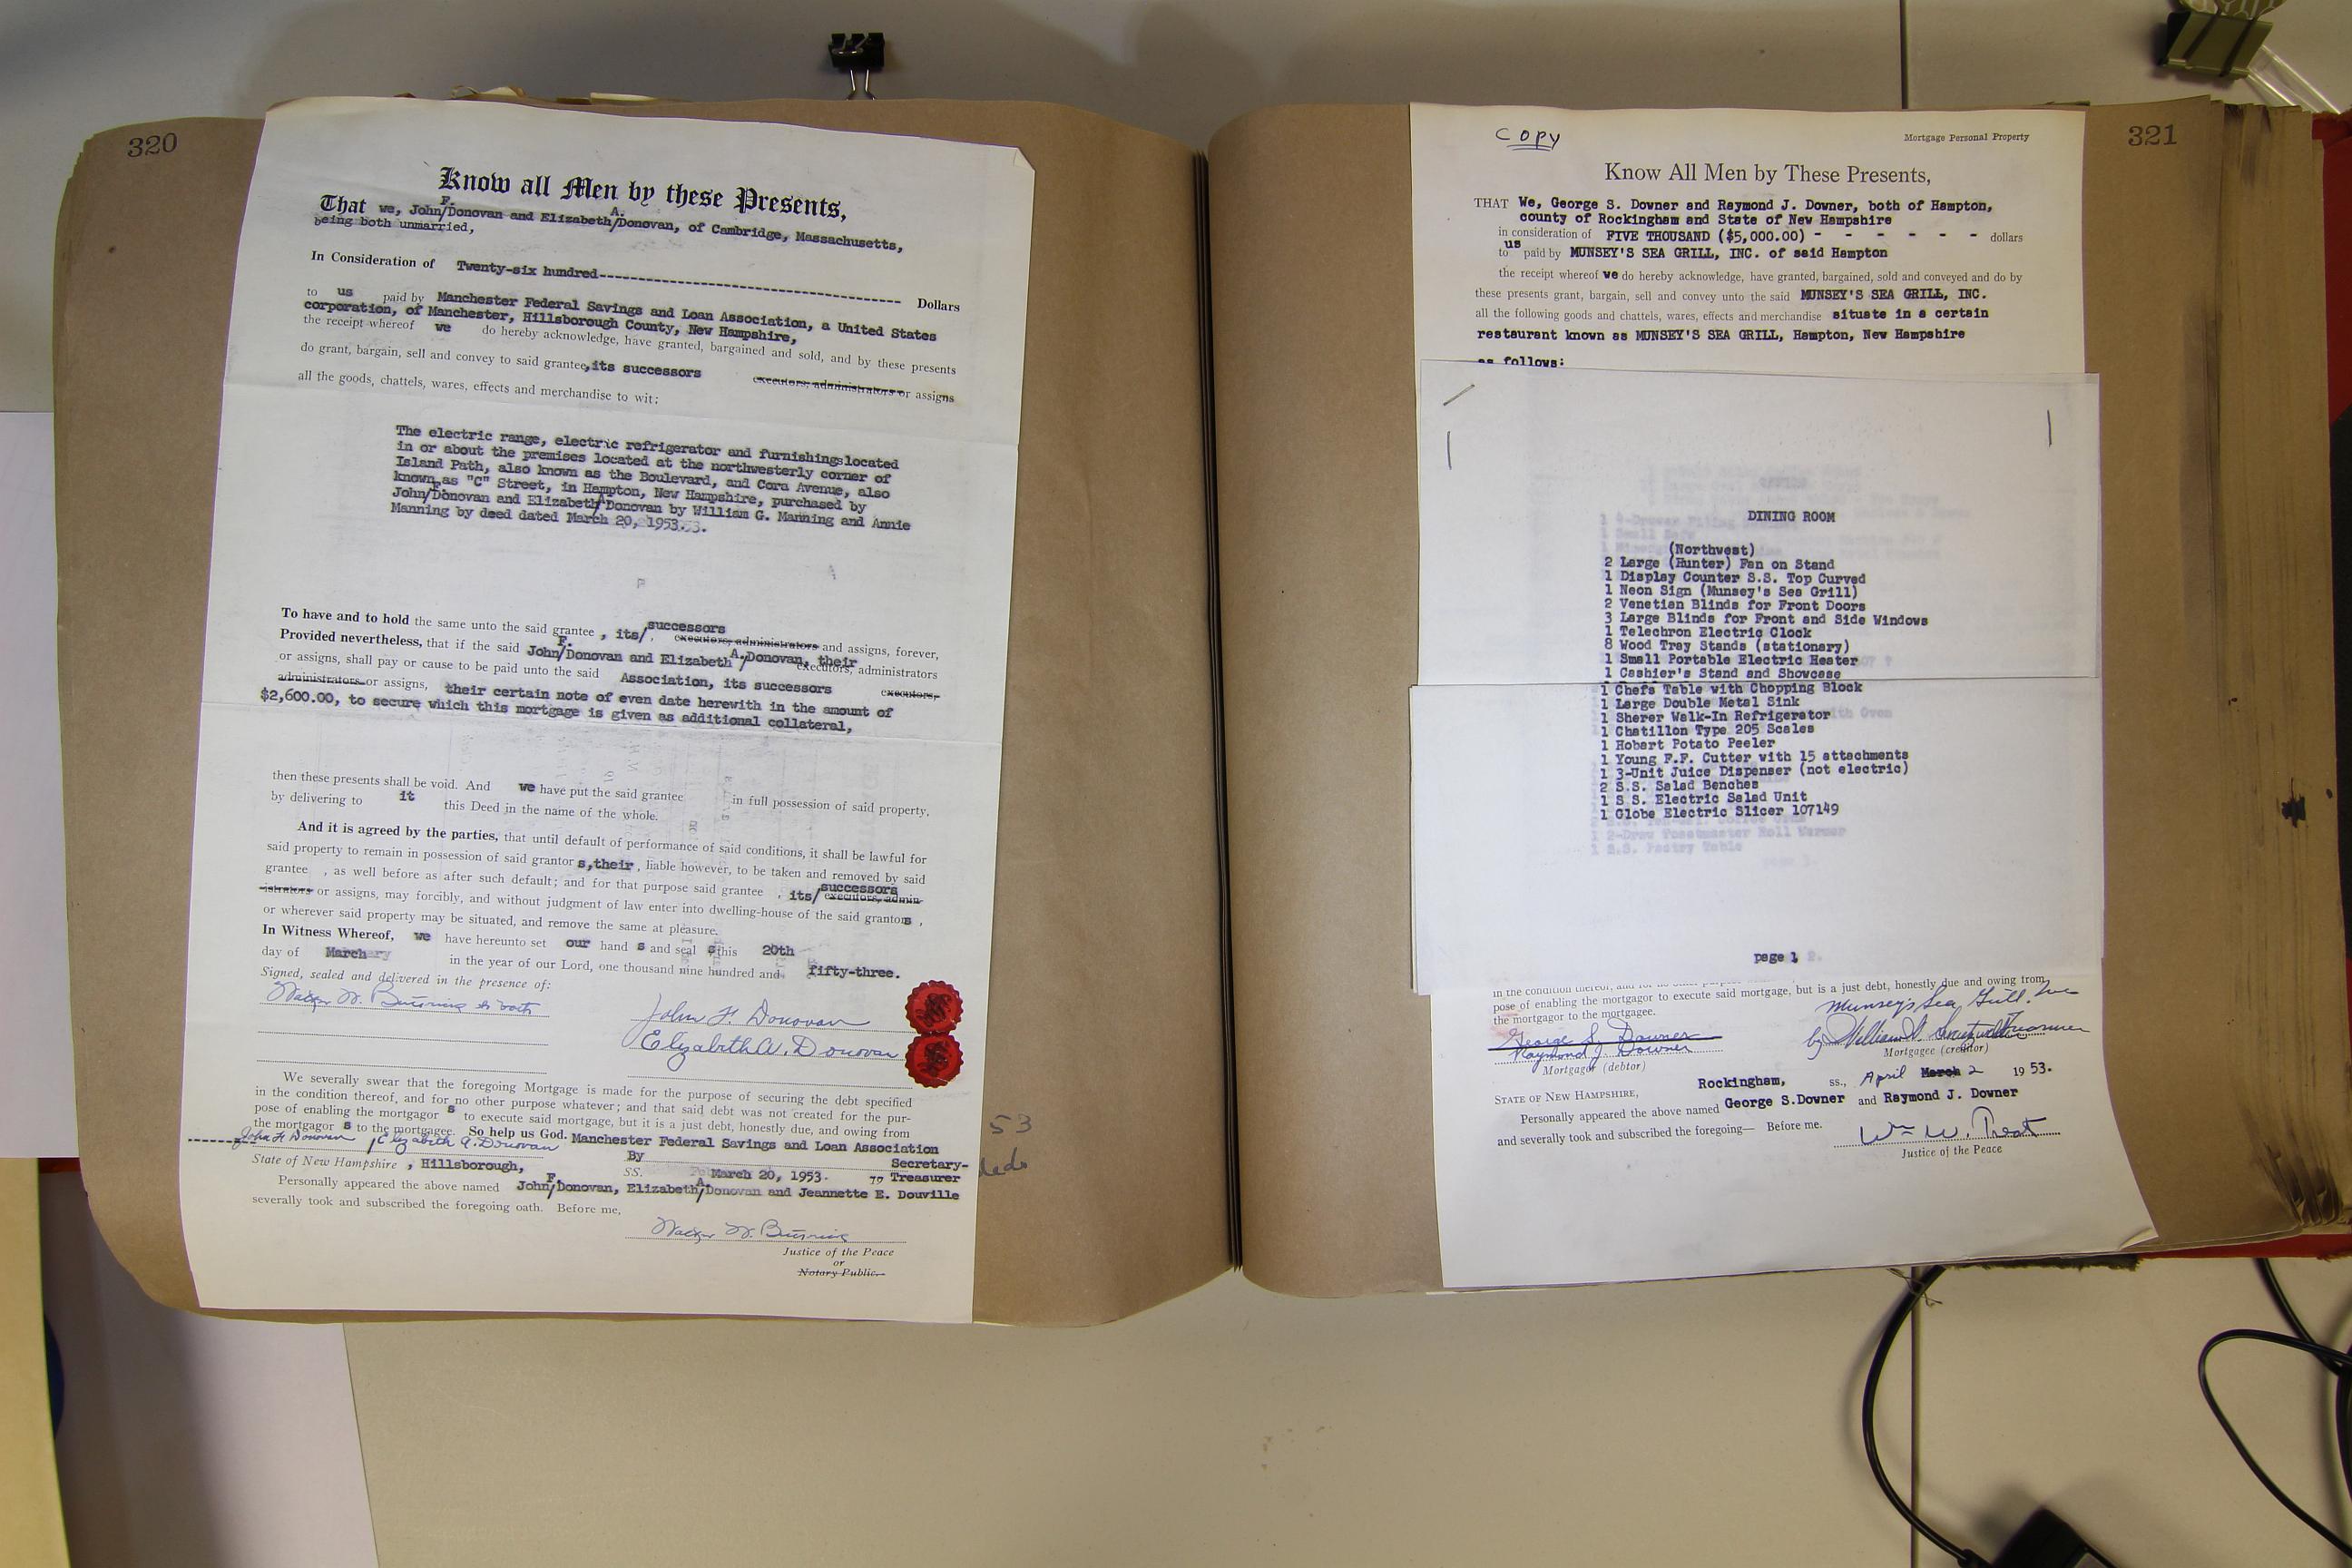 320
Know all Men by these Presents,
That we, John F./Donovan and Elizabeth A./Donovan, of Cambridge, Massachusetts,
being both unmarried,
In Consideration of Twenty-six hundred------------------------------------ Dollars
to us paid by Manchester Federal Savings and Loan Association, a United States
corporation, of Manchester, Hillsborough County, New Hampshire,
the receipt whereof we do hereby acknowledge, have granted, bargained and sold, and by these presents
do grant, bargain, sell and convey to said grantee, its successors executors, administrators or assigns
all the goods, chattels, wares, effects and merchandise to wit:
The electric range, electric refrigerator and furnishings located
in or about the premises located at the northwesterly corner of
Island Path, also known as the Boulevard, and Cora Avenue, also
known as "C" Street, in Hampton, New Hampshire, purchased by
John F./Donovan and Elizabeth A./Donovan by William G. Manning and Annie
Manning by deed dated March 20, 1953.
To have and to hold the same unto the said grantee , its/ successors executors, administrators and assigns, forever,
Provided nevertheless, that if the said John F./Donovan and Elizabeth A./Donovan, their executors, administrators
or assigns, shall pay or cause to be paid unto the said Association, its successors executors,
administrators or assigns, their certain note of even date herewith in the amount of
$2,600.00, to secure which this mortgage is given as additional collateral,
then these presents shall be void. And we have put the said grantee in full possession of said property,
by delivering to it this Deed in the name of the whole.
And it is agreed by the parties, that until default of performance of said conditions, it shall be lawful for
said property to remain in possession of said grantor s,their, liable however, to be taken and removed by said
grantee , as well before as after such default; and for that purpose said grantee , its/ successors executors, admin-
istrators or assigns, may forcibly, and without judgment of law enter into dwelling-house of the said grantors ,
or wherever said property may be situated, and remove the same at pleasure.
In Witness Whereof, we have hereunto set our hand s and seal s this 20th
day of March in the year of our Lord, one thousand nine hundred and fifty-three.
Signed, sealed and delivered in the presence of:
to both
John F. Donovan
Elizabeth A. Donovan
We severally swear that the foregoing Mortgage is made for the purpose of securing the debt specified
in the condition thereof, and for no other purpose whatever; and that said debt was not created for the pur-
pose of enabling the mortgagor s to execute said mortgage, but it is a just debt, honestly due, and owing from
the mortgagor s to the mortgagee. So help us God. Manchester Federal Savings and Loan Association
John F Donovan , Elizabeth A. Donovan By Secretary-
State of New Hampshire , Hillsborough, SS. March 20, 1953. Treasurer
Personally appeared the above named John F./Donovan, Elizabeth A./Donovan and Jeannette E. Douville
severally took and subscribed the foregoing oath. Before me,
Justice of the Peace
or
Notary Public.
53
321
Copy
Mortgage Personal Property
Know All Men by These Presents,
THAT We, George S. Downer and Raymond J. Downer, both of Hampton,
county of Rockingham and State of New Hampshire
in consideration of FIVE THOUSAND ($5,000.00) - - - - - - dollars
to us paid by MUNSEY'S SEA GRILL, INC. of said Hampton
the receipt whereof we do hereby acknowledge, have granted, bargained, sold and conveyed and do by
these presents grant, bargain, sell and convey unto the said MUNSEY'S SEA GRILL, INC.
all the following goods and chattels, wares, effects and merchandise situate in a certain
restaurant known as MUNSEY'S SEA GRILL, Hampton, New Hampshire
as follows:
DINING ROOM
(Northwest)
2 Large (Hunter) Fan on Stand
1 Display Counter S.S. Top Curved
1 Neon Sign (Munsey's Sea Grill)
2 Venetian Blinds for Front Doors
3 Large Blinds for Front and Side Windows
1 Telechron Electric Clock
8 Wood Tray Stands (stationary)
1 Small Portable Electric Heater
1 Cashier's Stand and Showcase
1 Chefs Table with Chopping Block
1 Large Double Metal Sink
1 Sherer Walk-In Refrigerator
1 Chatillon Type 205 Scales
1 Hobart Potato Peeler
1 Young F.F. Cutter with 15 attachments
1 3-Unit Juice Dispenser (not electric)
2 S.S. Salad Benches
1 S.S. Electric Salad Unit
1 Globe Electric Slicer 107149
page 1
in the condition thereof, and for no other
pose of enabling the mortgagor to execute said mortgage, but is a just debt, honestly due and owing from
the mortgagor to the mortgagee.
Munsey's Sea Grill. Inc
George S. Downer
Raymond J. Downer
by William Treasurer
Mortgagor (debtor)
Mortgagee (creditor)
STATE OF NEW HAMPSHIRE, Rockingham, ss., April March 2 1953.
Personally appeared the above named George S.Downer and Raymond J. Downer
and severally took and subscribed the foregoing— Before me.
Wm W. Treat
Justice of the Peace